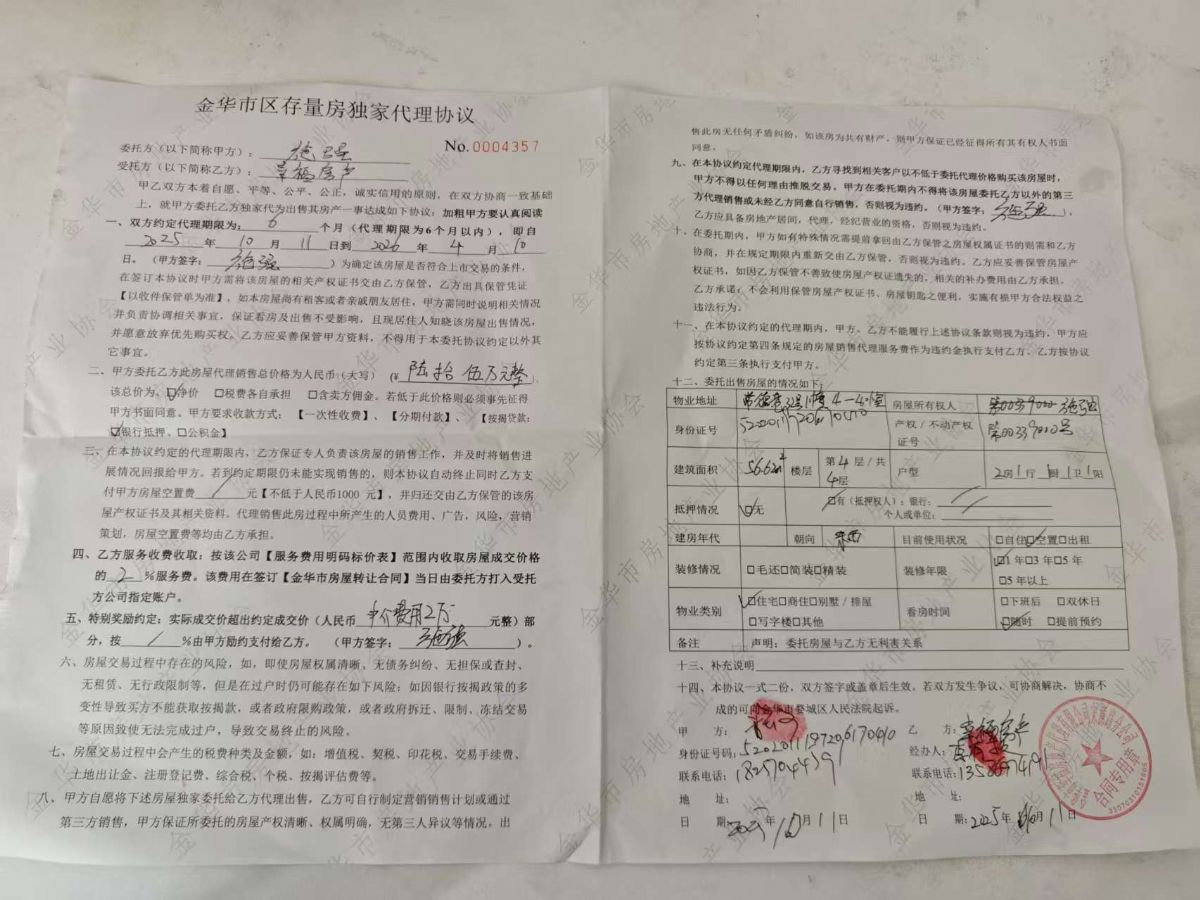 金华市区存量房独家代理协议
No.0004357
委托方（以下简称甲方）：
受托方（以下简称乙方）：幸福房产
甲乙双方本着自愿、平等、公平、公正，诚实信用的原则，在双方协商一致基础
上，就甲方委托乙方独家代为出售其房产一事达成如下协议：加粗甲方要认真阅读
一、双方约定代理期限为： 6 个月（代理期限为6个月以内），即自
2025 年 10 月 11 日到 2026 年 4 月 10
日。（甲方签字： ）为确定该房屋是否符合上市交易的条件，
在签订本协议时甲方需将该房屋的相关产权证书交由乙方保管，乙方出具保管凭证
【以收件保管单为准】，如本房屋尚有租客或者亲戚朋友居住，甲方需同时说明相关情况
并负责协调相关事宜，保证看房及出售不受影响，且现居住人知晓该房屋出售情况，
并愿意放弃优先购买权。乙方应妥善保管甲方资料，不得用于本委托协议约定以外其
它事宜。
二、甲方委托乙方此房屋代理销售总价格为人民币（大写）（¥ 陆拾伍万元整 ），
该总价为，☑净价 □税费各自承担 □含卖方佣金。若低于此价格则必须事先征得
甲方书面同意。甲方要求收款方式：【一次性收费】、【分期付款】、【按揭贷款：
☑银行抵押、□公积金】
三、在本协议约定的代理期限内，乙方保证专人负责该房屋的销售工作，并及时将销售进
展情况回报给甲方。若到约定期限仍未能实现销售的，则本协议自动终止同时乙方支
付甲方房屋空置费 / 元【不低于人民币1000 元】，并归还交由乙方保管的该房
屋产权证书及其相关资料。代理销售此房过程中所产生的人员费用、广告，风险，营销
策划，房屋空置费等均由乙方承担。
四、乙方服务收费收取：按该公司【服务费用明码标价表】范围内收取房屋成交价格
的 2 %服务费。该费用在签订【金华市房屋转让合同】当日由委托方打入受托
方公司指定账户。
五、特别奖励约定：实际成交价超出约定成交价（人民币 中介费用2万 元整）部
分，按 / %由甲方励约支付给乙方。（甲方签字： ）。
六、房屋交易过程中存在的风险，如，即使房屋权属清晰、无债务纠纷、无担保或查封、
无租赁、无行政限制等，但是在过户时仍可能存在如下风险：如因银行按揭政策的多
变性导致买方不能获取按揭款，或者政府限购政策，或者政府拆迁、限制、冻结交易
等原因致使无法完成过户，导致交易终止的风险。
七、房屋交易过程中会产生的税费种类及金额，如：增值税、契税、印花税、交易手续费、
土地出让金、注册登记费、综合税、个税、按揭评估费等。
八、甲方自愿将下述房屋独家委托给乙方代理出售，乙方可自行制定营销销售计划或通过
第三方销售，甲方保证所委托的房屋产权清晰、权属明确，无第三人异议等情况，出
售此房无任何矛盾纠纷，如该房为共有财产，则甲方保证已经征得所有其有权人书面
同意。
九、在本协议约定代理期限内，乙方寻找到相关客户以不低于委托代理价格购买该房屋时，
甲方不得以任何理由推脱交易。甲方在委托期内不得将该房屋委托乙方以外的第三
方代理销售或未经乙方同意自行销售，否则视为违约。（甲方签字： ），
乙方应具备房地产居间，代理，经纪营业的资格，否则视为违约。
十、在委托期内，甲方如有特殊情况需提前拿回由乙方保管之房屋权属证书的则需和乙方
协商，并在规定期限内重新交由乙方保管，否则视为违约。乙方应妥善保管房屋产
权证书，如因乙方保管不善致使房屋产权证遗失的，相关的补办费用由乙方承担。
乙方承诺：不会利用保管房屋产权证书、房屋钥匙之便利，实施有损甲方合法权益之
违法行为。
十一、在本协议约定的代理期内，甲方、乙方不能履行上述协议条款则视为违约，甲方应
按协议约定第四条规定的房屋销售代理服务费作为违约金执行支付乙方。乙方按协议
约定第三条执行支付甲方。
十二、委托出售房屋的情况如下：
物业地址 4-4 房屋所有权人
身份证号 产权/不动产权证号 第00339000号
建筑面积 56.62㎡ 楼层 第4层/共4层 户型 2房1厅1厨1卫1阳
抵押情况 ☑无 □有（抵押权人）：银行： /
个人或单位：
建房年代 朝向 东西 目前使用状况 □自住☑空置□出租
装修情况 □毛还□简装□精装 装修年限 ☑1年□3年□5年
□5年以上
物业类别 ☑住宅□商住□别墅/排屋
□写字楼□其他 看房时间 □下班后 □双休日
☑随时 □提前预约
备注 声明：委托房屋与乙方无利害关系
十三、补充说明
十四、本协议一式二份，双方签字或盖章后生效。若双方发生争议，可协商解决，协商不
成的可向金华市婺城区人民法院起诉。
甲 方：
乙 方：幸福房产
身份证号码：
经办人：
联系电话：
联系电话：
地 址：
地 址：
日 期：2025年10月11日
日 期：2025年10月11日
合同专用章
金华市房地产业协会